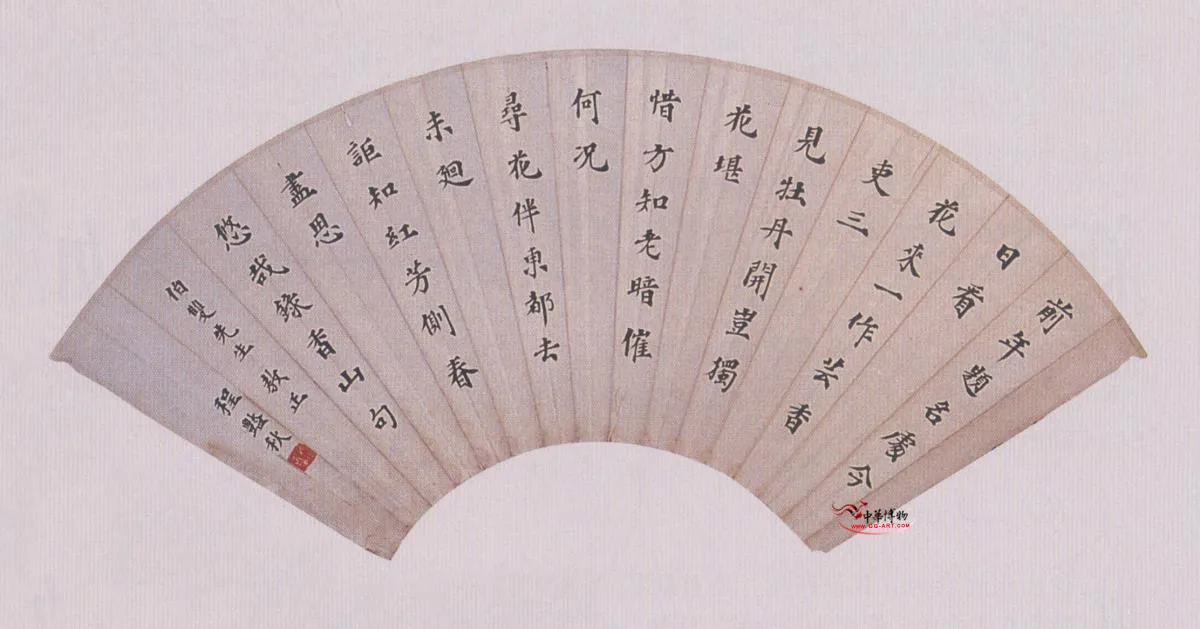 前年題名處今
日看
花來一作芸香
吏三
見牡丹開豈獨
花堪
惜方知老暗催
何況
尋花伴東都去
未廻
詎知紅芳側春
盡思
悠哉錄香山句
伯雙先生教正
程豔秋
中華博物
WWW.GG-ART.COM